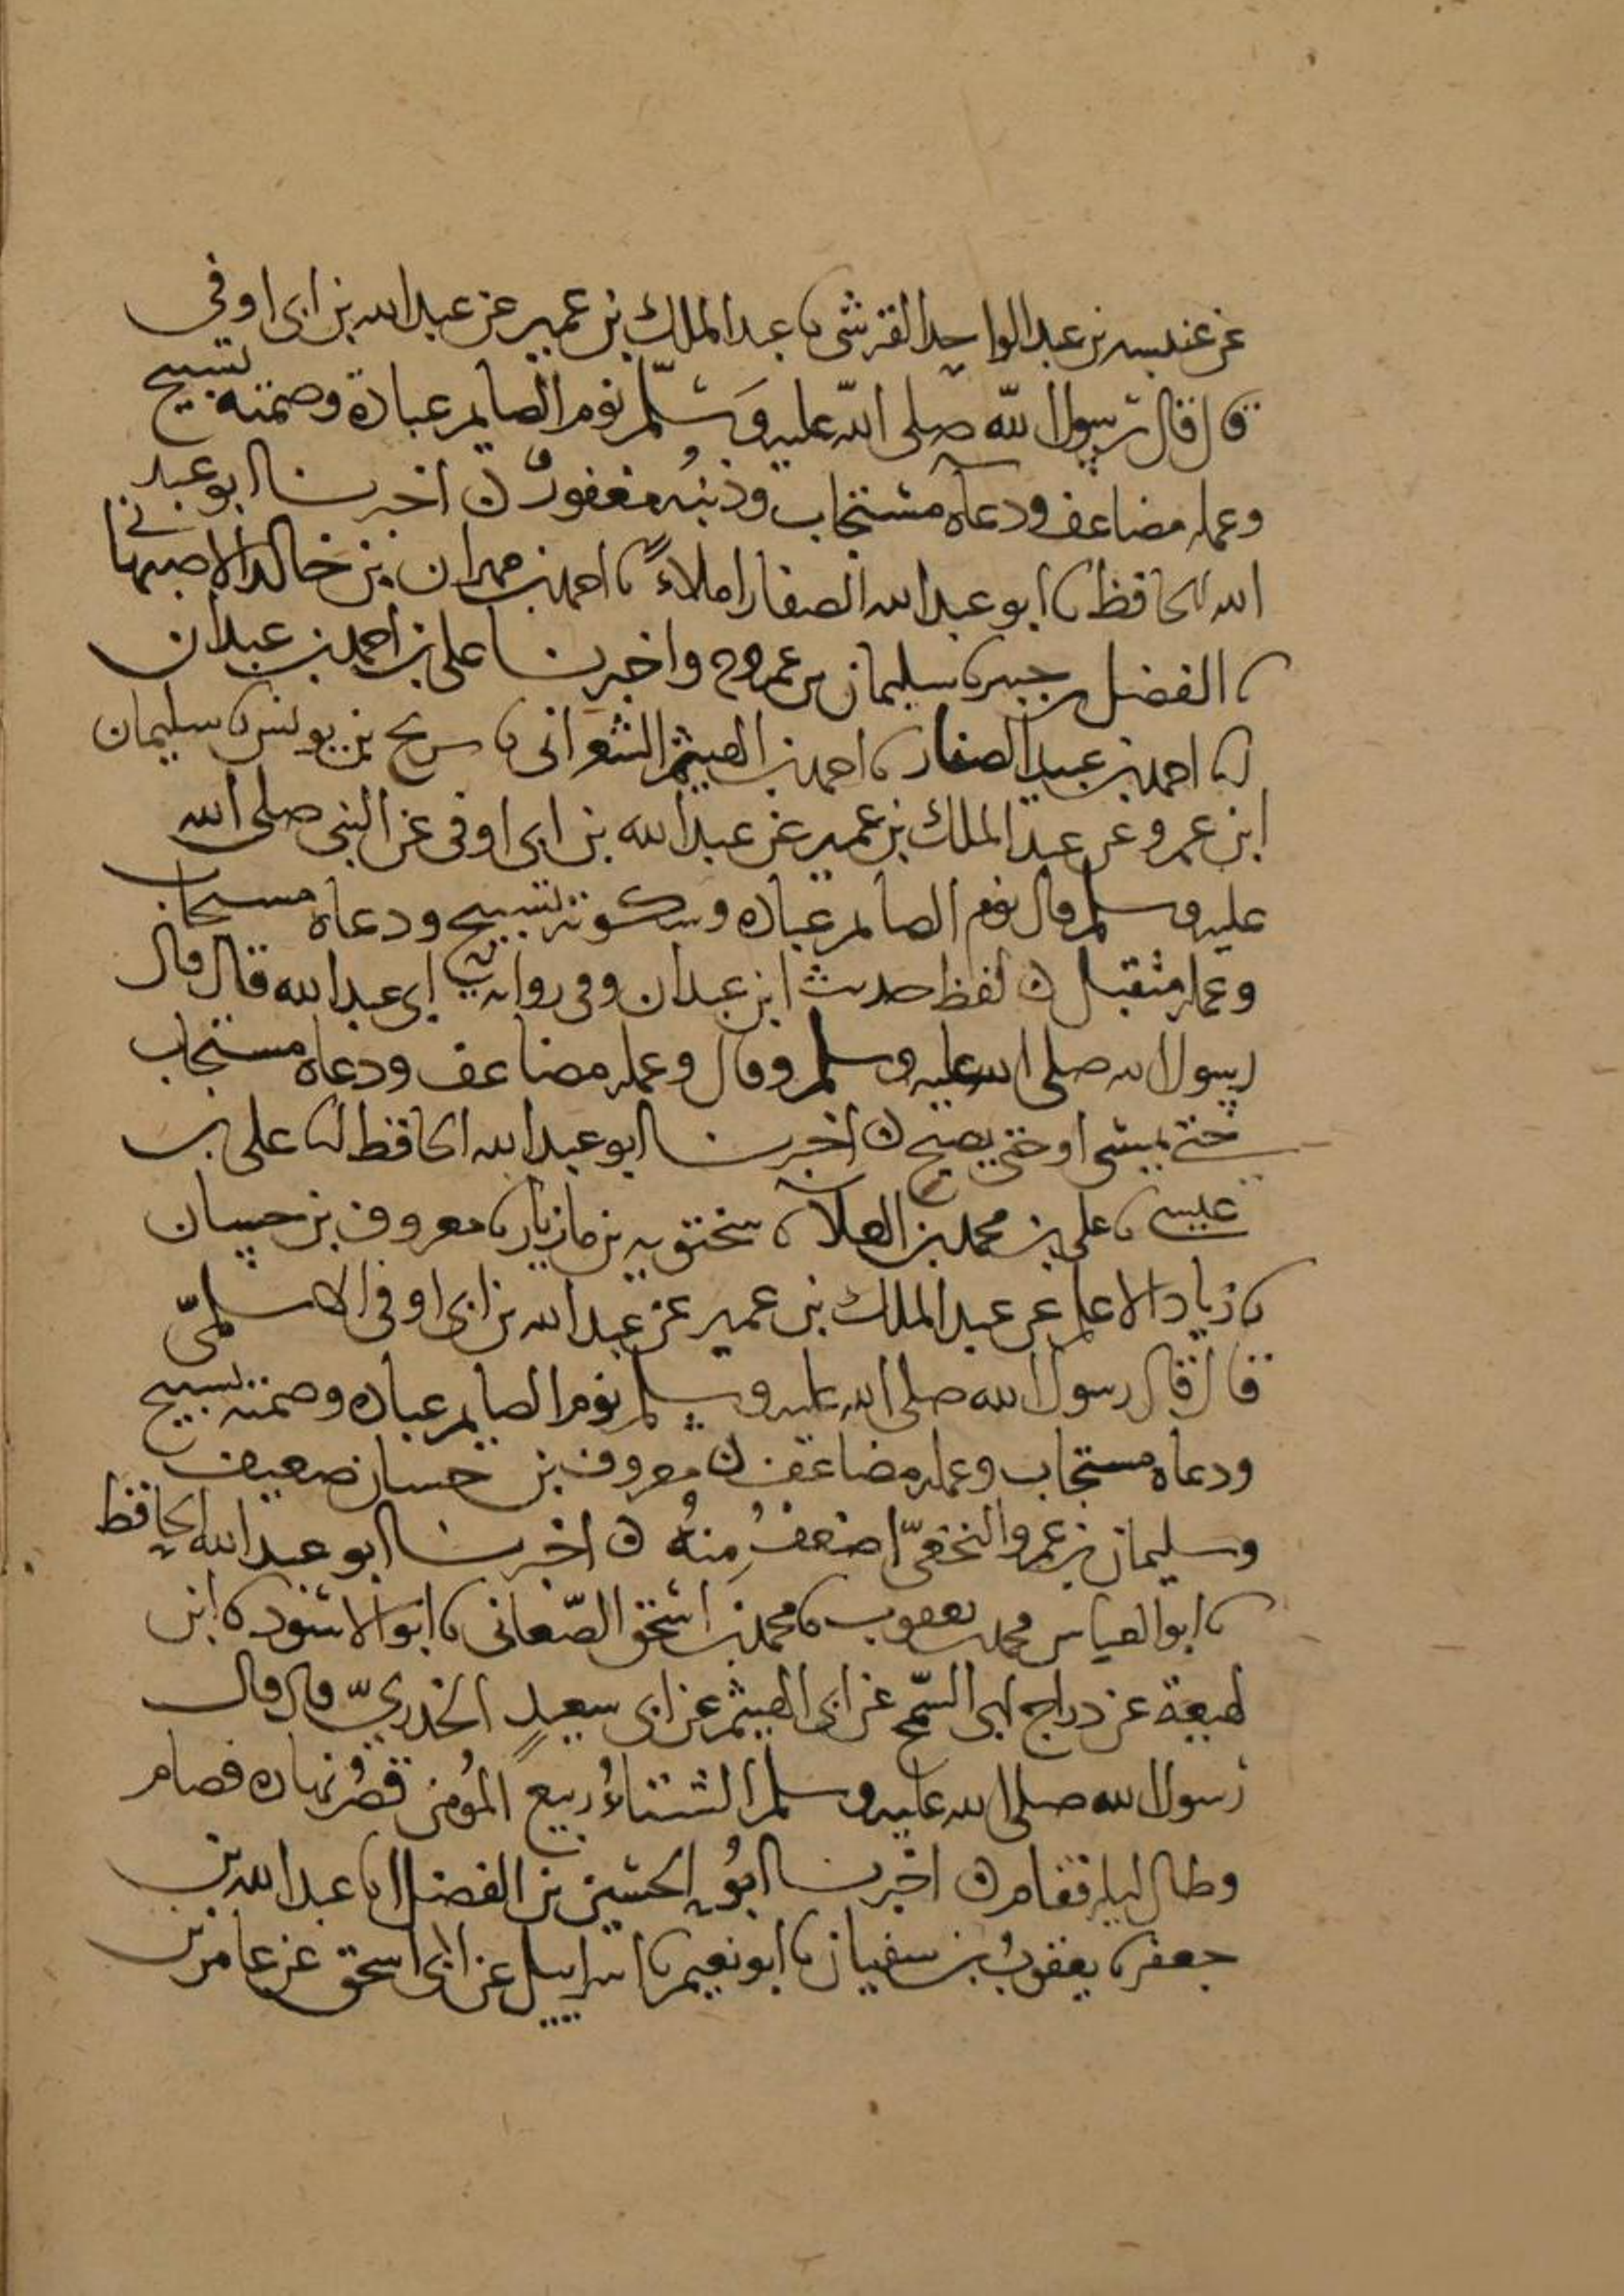 عن عنبسه بن عبد الواحد القرشي نا عبد الملك بن عمير عن عبد الله بن ابي اوفى
قال قال رسول الله صلى الله عليه وسلم نوم الصايم عبادة وصمته تسبيح
وعمله مضاعف ودعاه مستجاب وذنبه مغفور ن اخبرنا ابو عبد
الله الحافظ نا ابو عبد الله الصفار املاء نا احمد بن مهران بن خالد الاصبهاني
نا الفضل بن جبير نا سليمان بن عمرو ح واخبرنا علي بن احمد بن عبدان
انا احمد بن عبيد الصفار نا احمد بن الهيثم الشعراني نا سريج بن يونس نا سليمان
ابن عمرو عن عبد الملك بن عمير عن عبد الله بن ابي اوفى عن النبي صلى الله
عليه وسلم قال نوم الصايم عباده وسكوته تسبيح ودعاه مستجاب
وعمله متقبل ن لفظ حديث ابن عبدان وفي رواية ابي عبد الله قال قال
رسول الله صلى الله عليه وسلم وقال وعمله مضاعف ودعاه مستجاب
حتى يمسي او حتى يصبح ن اخبرنا ابو عبد الله الحافظ انا علي بن
عيسى نا علي بن محمد بن العلاء نا سختويه بن مازيار نا معروف بن حسان
نا زياد الاعلم عن عبد الملك بن عمير عن عبد الله بن ابي اوفى الاسلمي
قال قال رسول الله صلى الله عليه وسلم نوم الصايم عباده وصمته تسبيح
ودعاه مستجاب وعمله مضاعف ن معروف بن حسان ضعيف
وسليمان بن عمرو النخعي اضعف منه ن اخبرنا ابو عبد الله الحافظ
نا ابو العباس محمد بن يعقوب نا محمد بن اسحق الصغاني نا ابو الاسود نا ابن
لهيعة عن دراج ابي السمح عن ابي الهيثم عن ابي سعيد الخدري قال قال
رسول الله صلى الله عليه وسلم الشتاء ربيع المؤمن قصر نهاره فصام
وطال ليله فقام ن اخبرنا ابو الحسين بن الفضل انا عبد الله بن
جعفر نا يعقوب بن سفيان نا ابو نعيم نا اسراييل عن ابي اسحق عن عامر بن